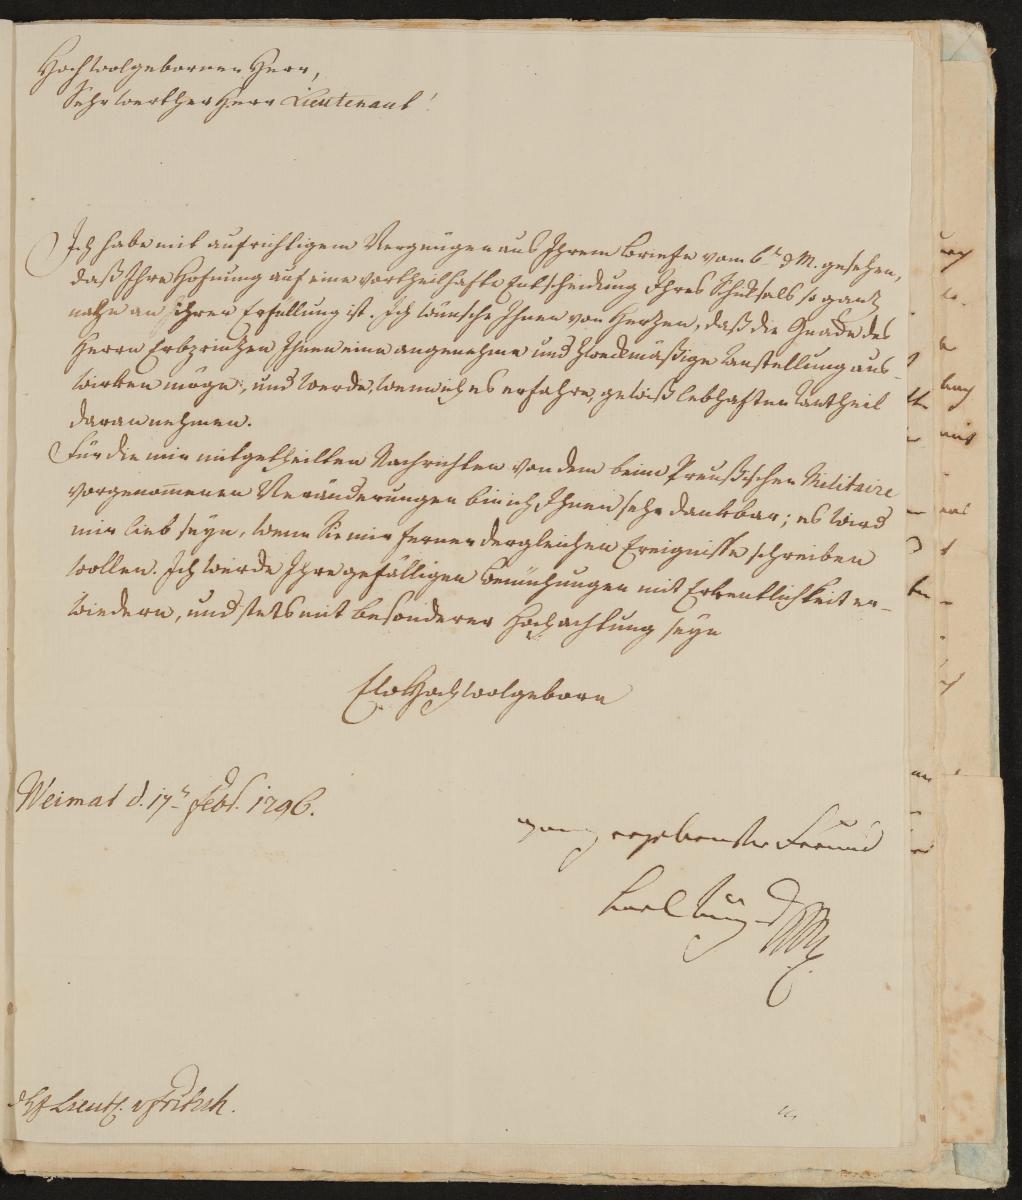 Hochwolgeborner Herr,
Sehr werther Herr Lieutenant!
Ich habe mit aufrichtigem Vergnügen aus Ihrem Briefe vom 6t. d. M. gesehen,
daß Ihre Hofnung auf eine vortheilhafte Entscheidung Ihres Schiksals so ganz
nahe an ihrer Erfüllung ist. Ich wünsche Ihnen von Herzen, daß die Gnade des
Herrn Erbprinzen Ihnen eine angenehme und zweckmäßige Anstellung aus-
wirken möge, und werde, wenn ich es erfahre, gewiß lebhaften Antheil
daran nehmen.
Für die mir mitgetheilten Nachrichten von dem beim Preußischen Militaire
vorgenommenen Veränderungen bin ich Ihnen sehr dankbar; es wird
mir lieb seyn, wenn Sie mir ferner dergleichen Ereignisse schreiben
wollen. Ich werde Ihre gefälligen Bemühungen mit Erkentlichkeit er-
wiedern, und stets mit besonderer Hochachtung seyn
Ew. Hochwolgeborn
Weimar d. 17t. Febr. 1796.
ganz ergebenster Freund
Carl August
Lieut. v. Fritsch.